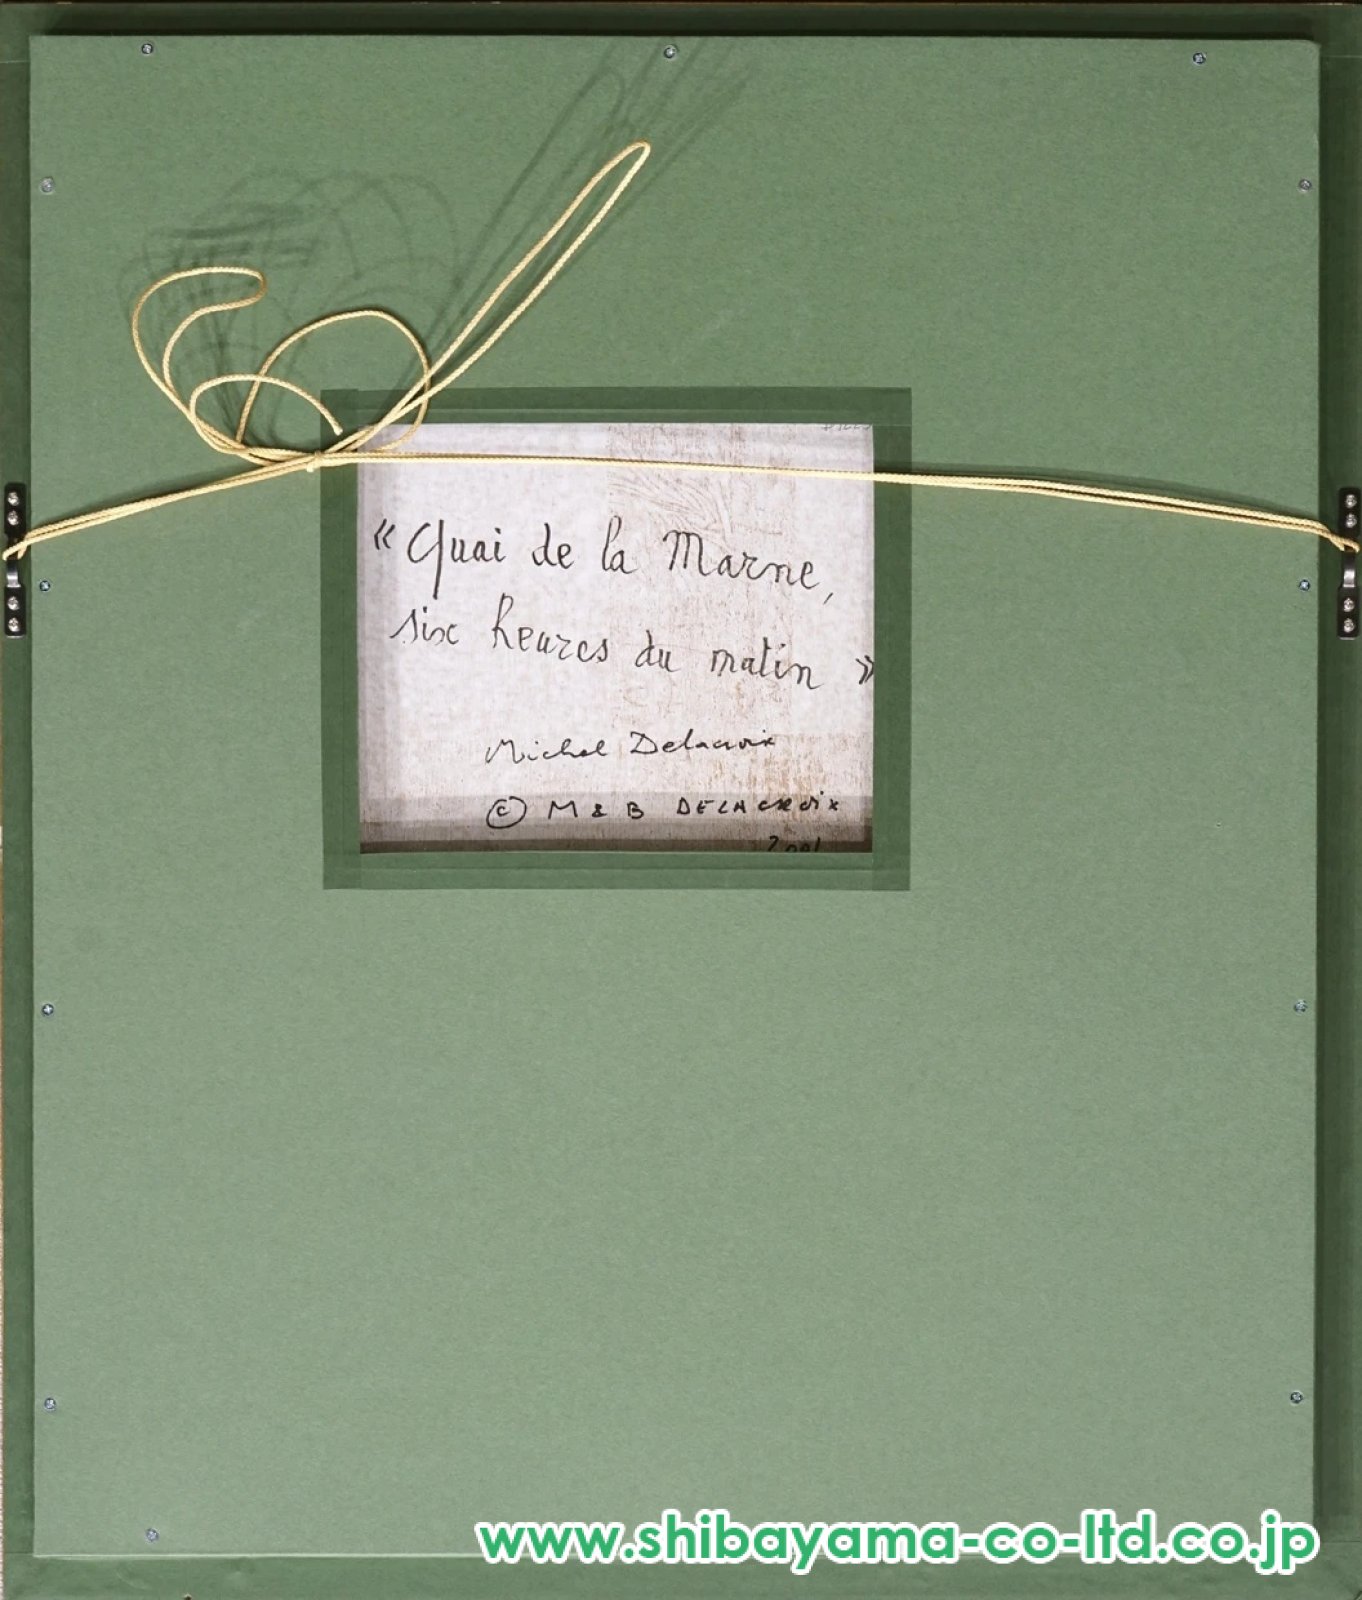 « Quai de la Marne,
six heures du matin »
Michel Delacroix
© M & B DELACROIX
2001
www.shibayama-co-ltd.co.jp